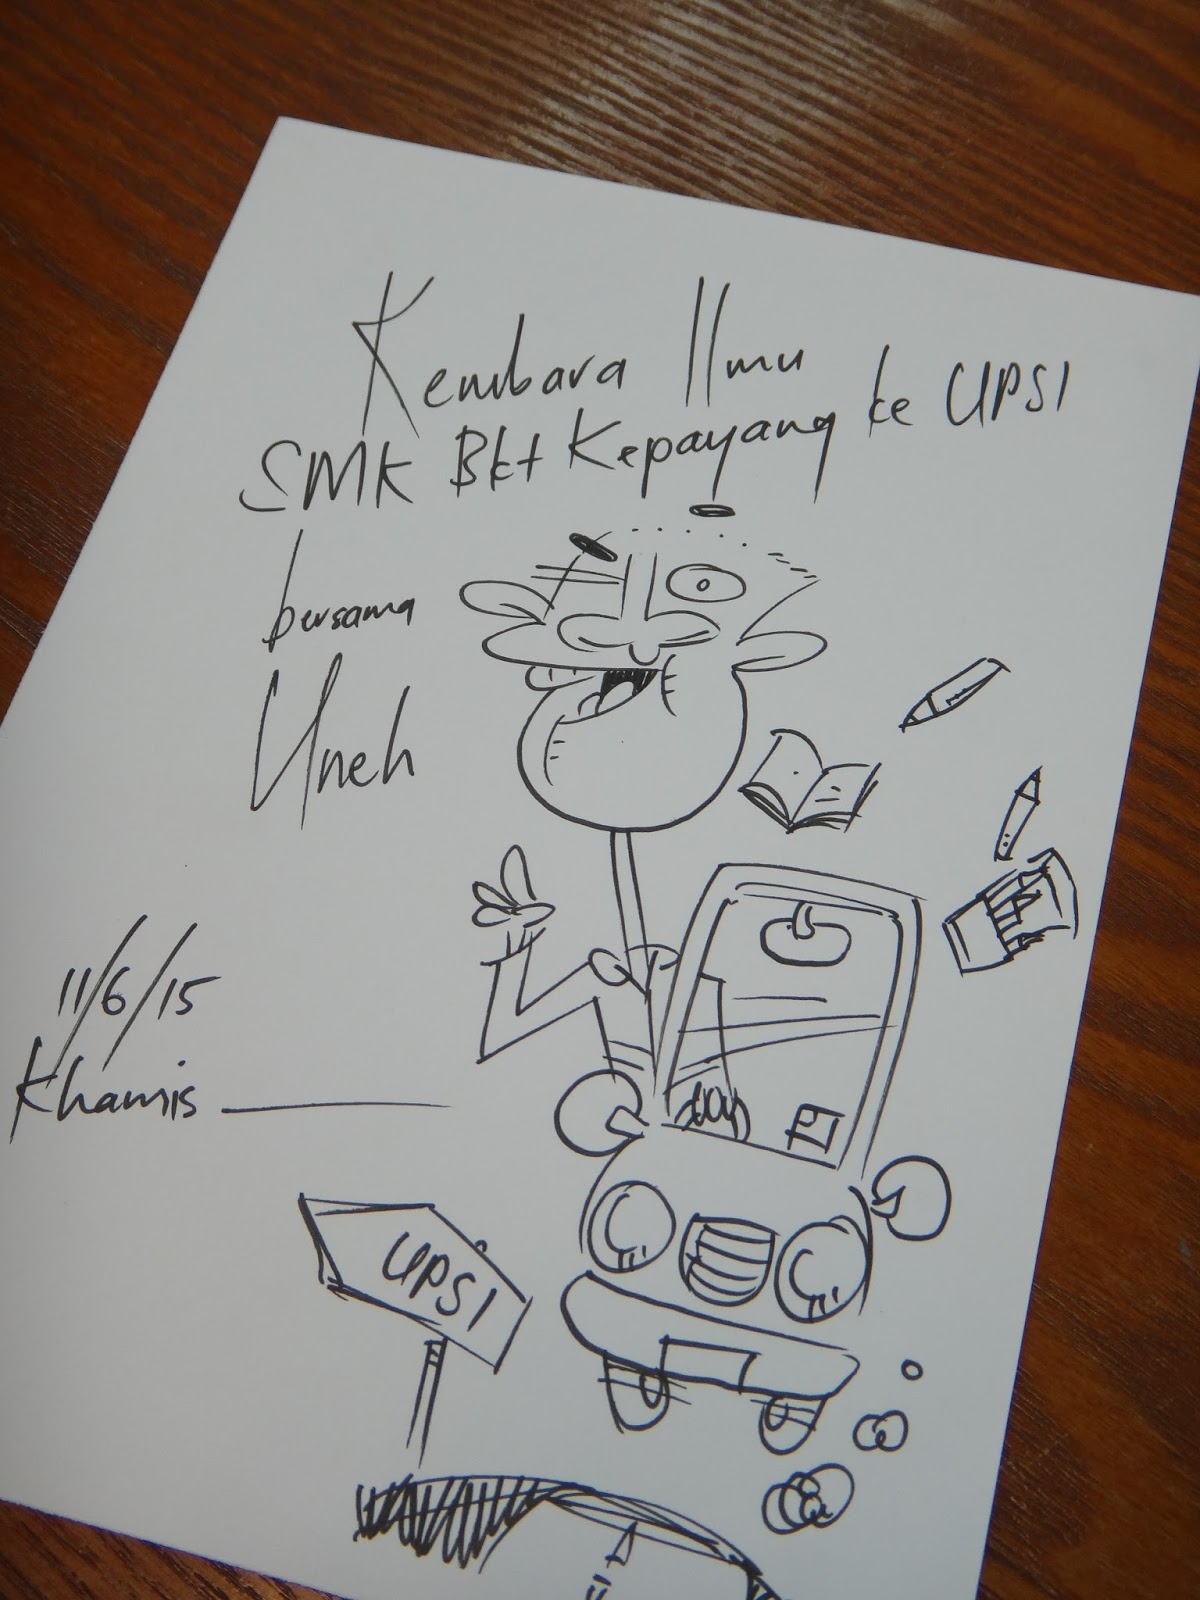 Kembara Ilmu
SMK Bkt Kepayang ke UPSI
bersama
Uneh
11/6/15
Khamis
UPSI